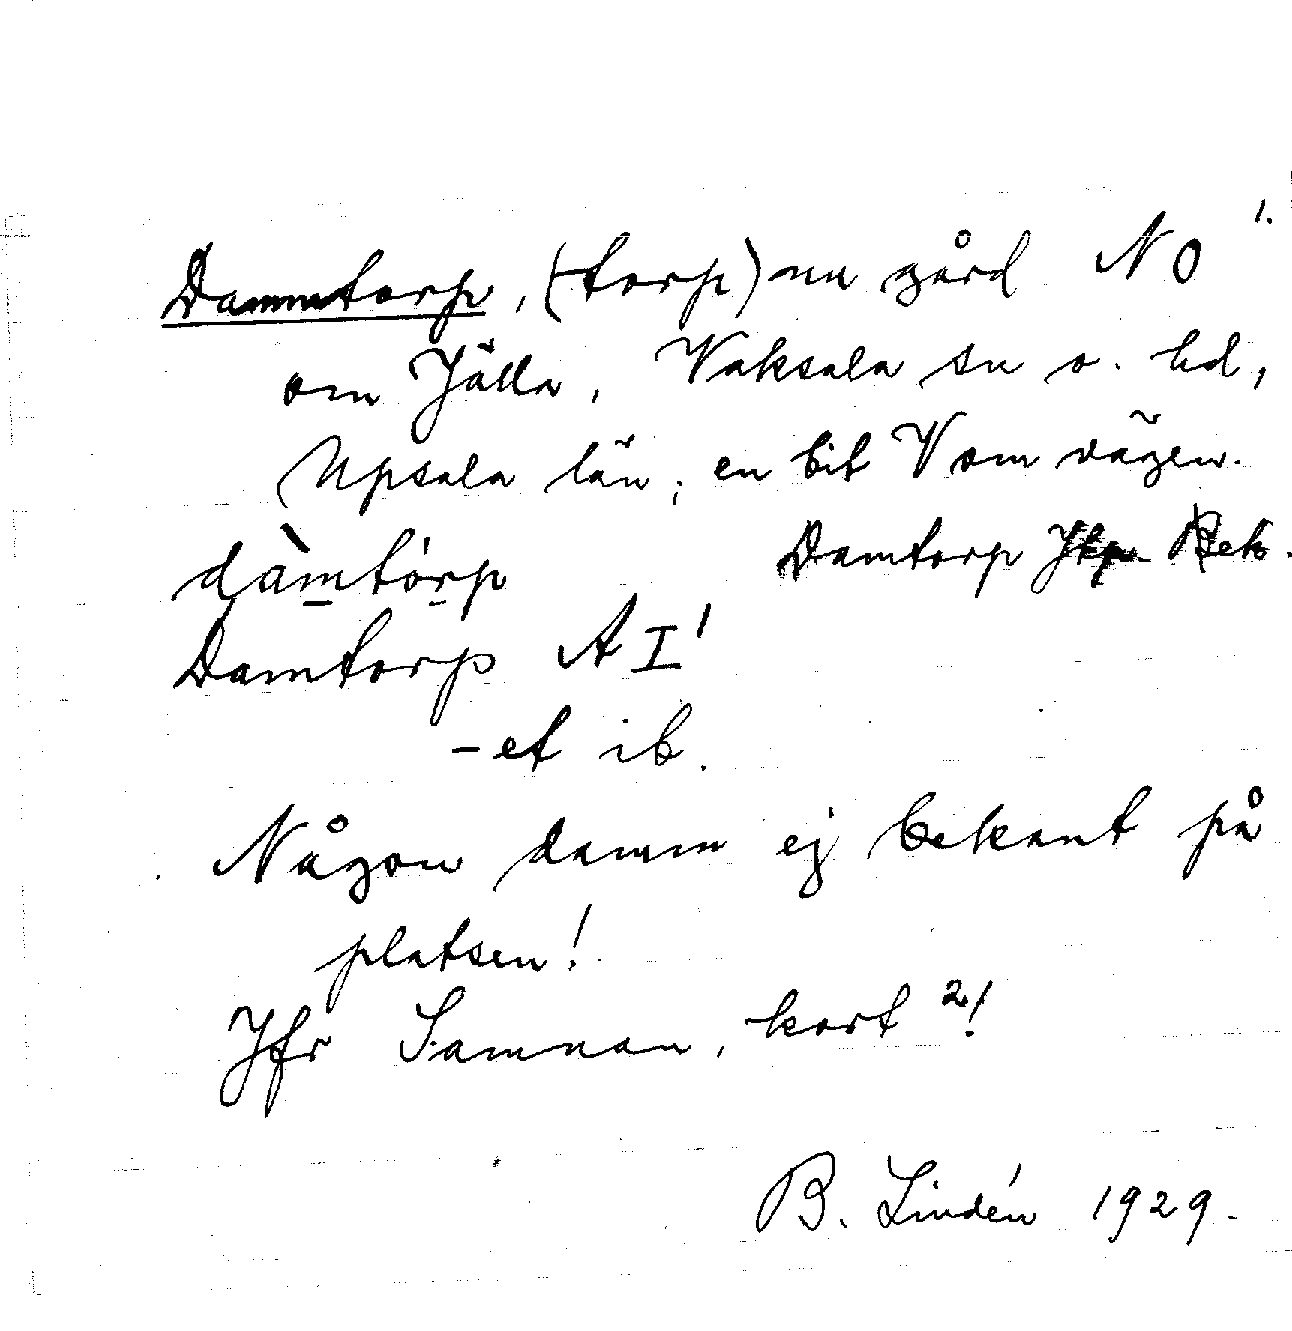 1.
Dammtorp, (torp) nu gård NO
om Jälla, Vaksala sn o. hd,
Upsala län; en bit V om vägen.
dàmtórp Damtorp Bek.
Damtorp A I'
-et ib.
Någon damm ej bekant på
platsen!
Jfr Samnan, kort 2!
B. Lindén 1929.